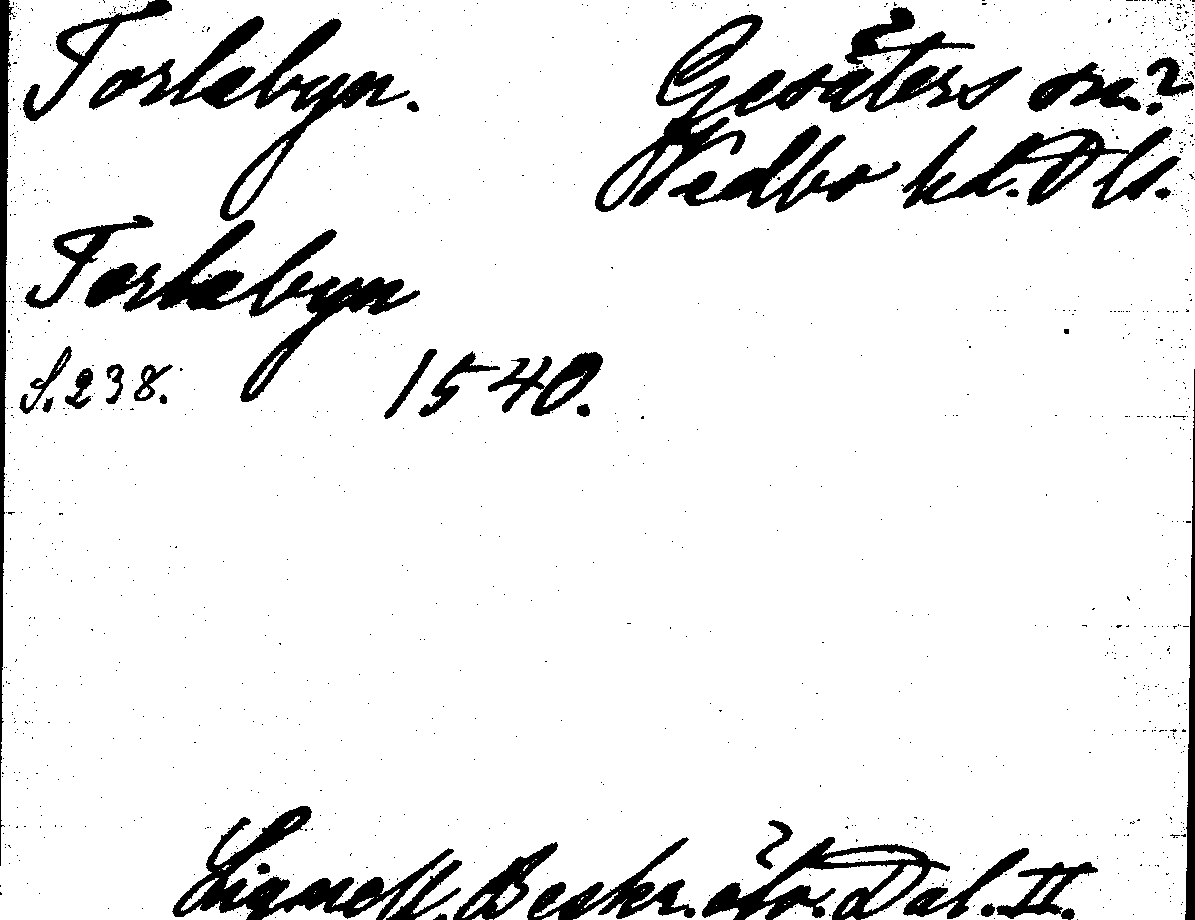 Torlæbyn. Gesäters sn.?
Vedbo hd. Dls.
Torlæbyn
S. 238. 1540.
Lignell. Beskr. öfv. Dal. II.